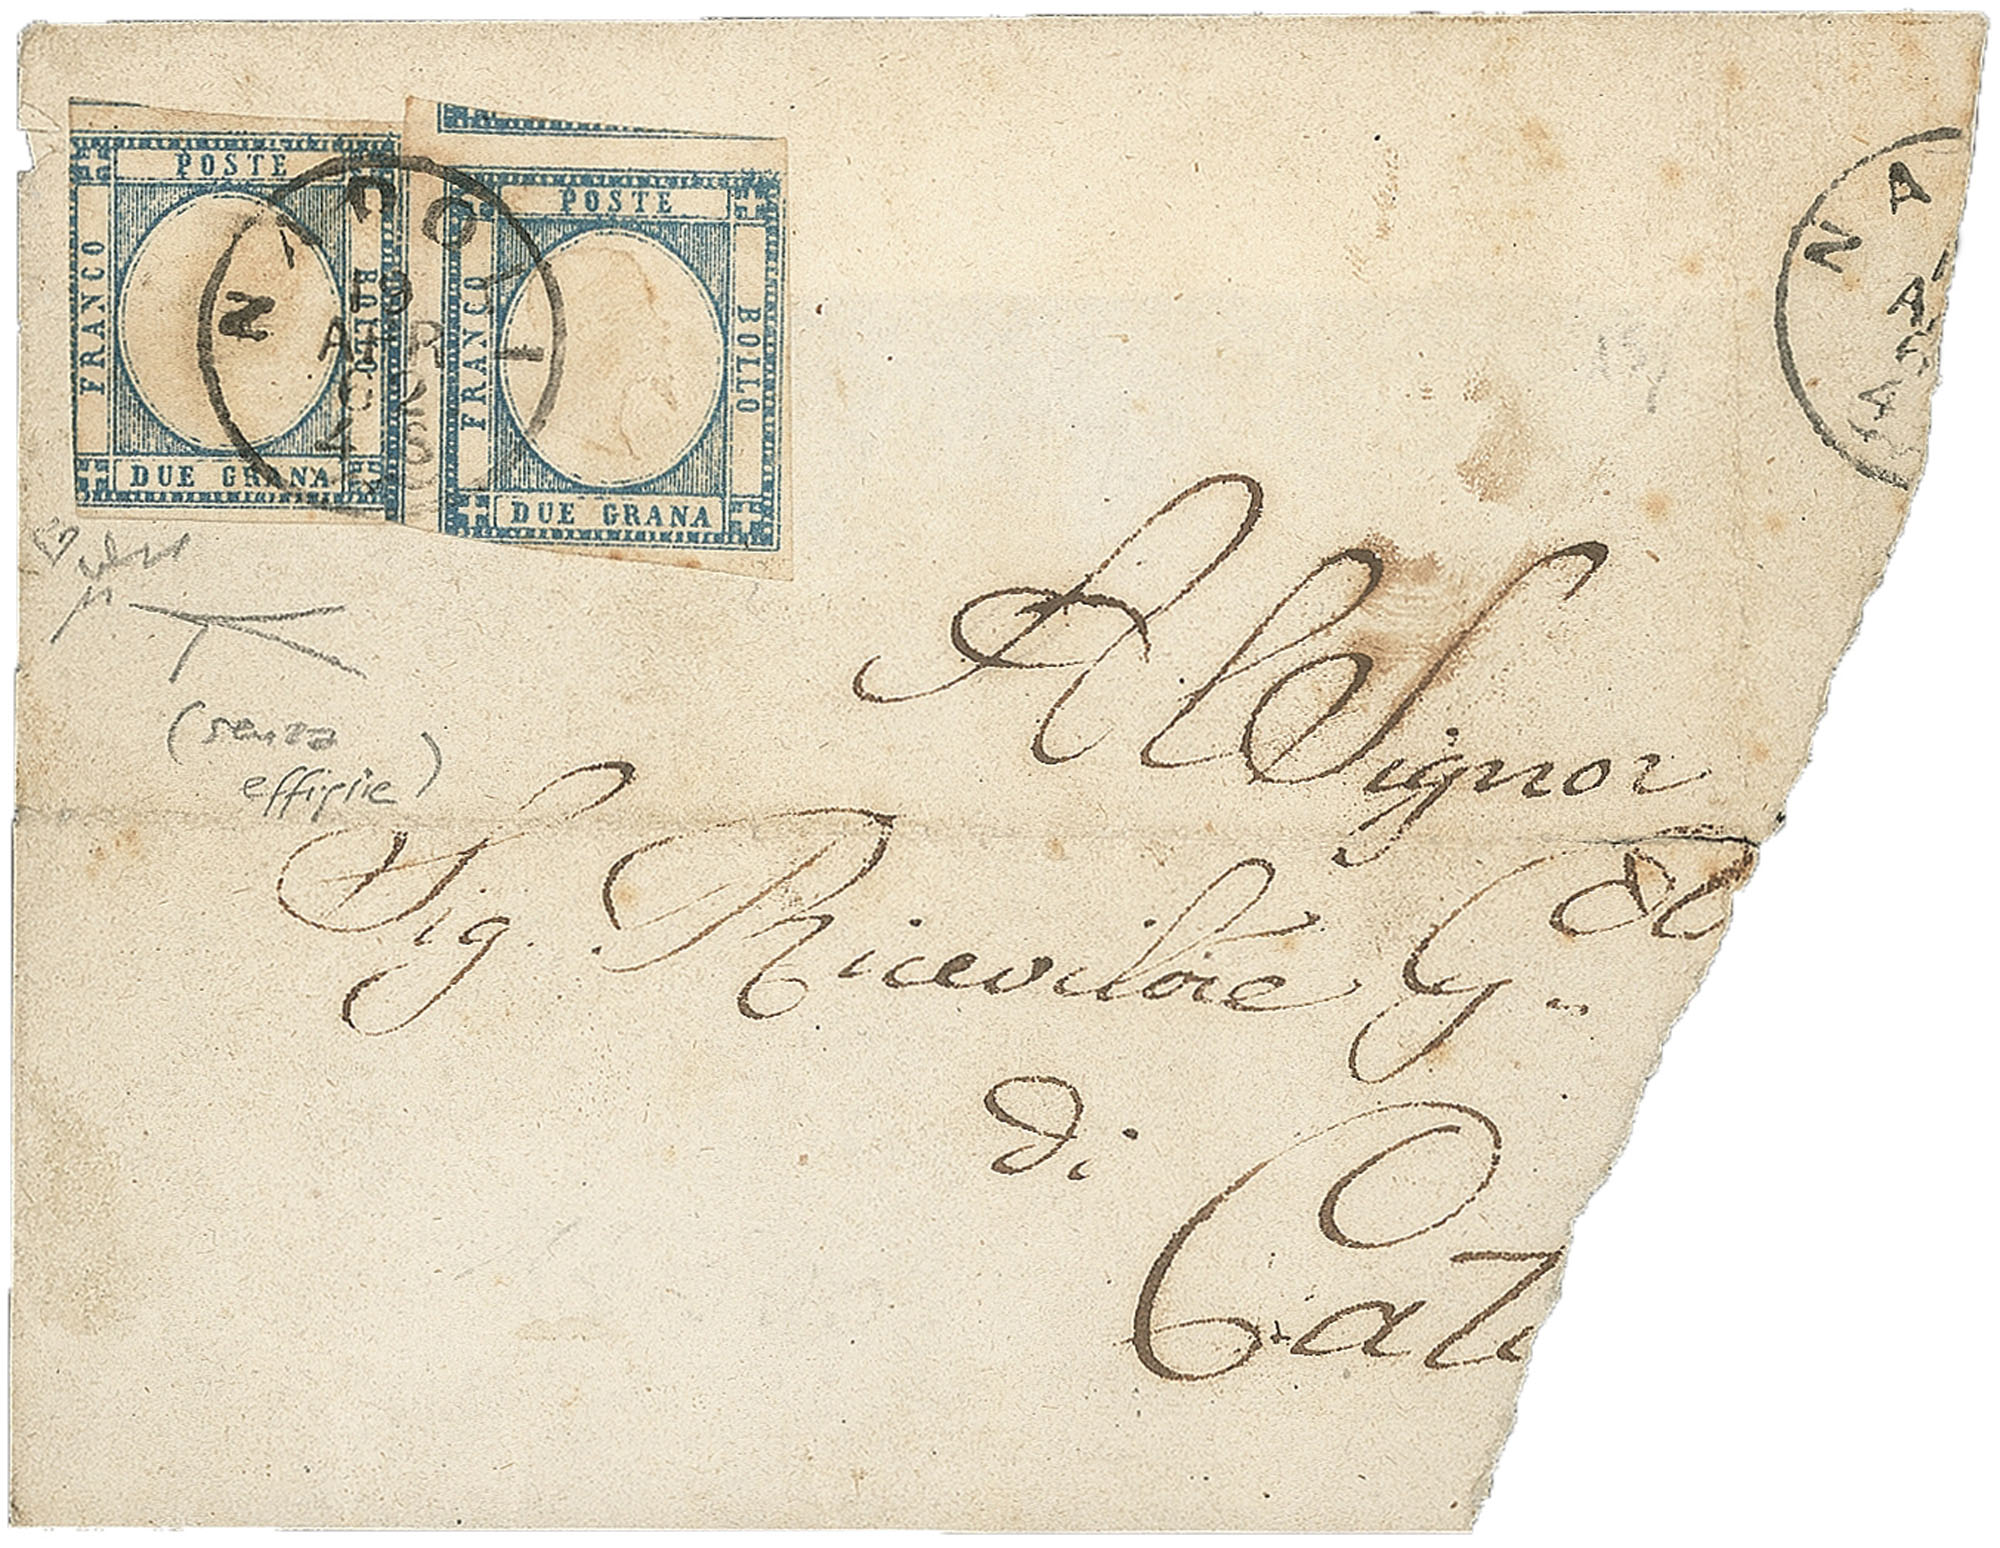 POSTE
FRANCO
BOLLO
DUE GRANA
POSTE
FRANCO
BOLLO
DUE GRANA
NAPOLI
19
APR
NA
(senza
effigie)
Al Signor
Sig. Ricevitore G
di
Cat